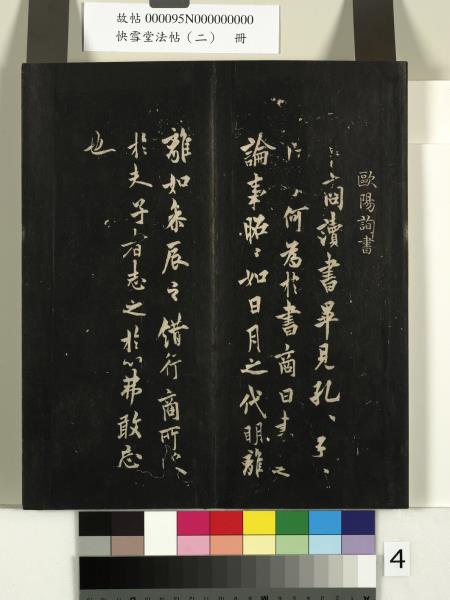 故帖 000095N000000000
快雪堂法帖（二） 冊
歐陽詢書
商讀書畢見孔〻子〻
何為於書商曰書之
論事昭〻如日月之代明離
離如參辰之錯行商所
於夫子者志之於心弗敢忘
也
4